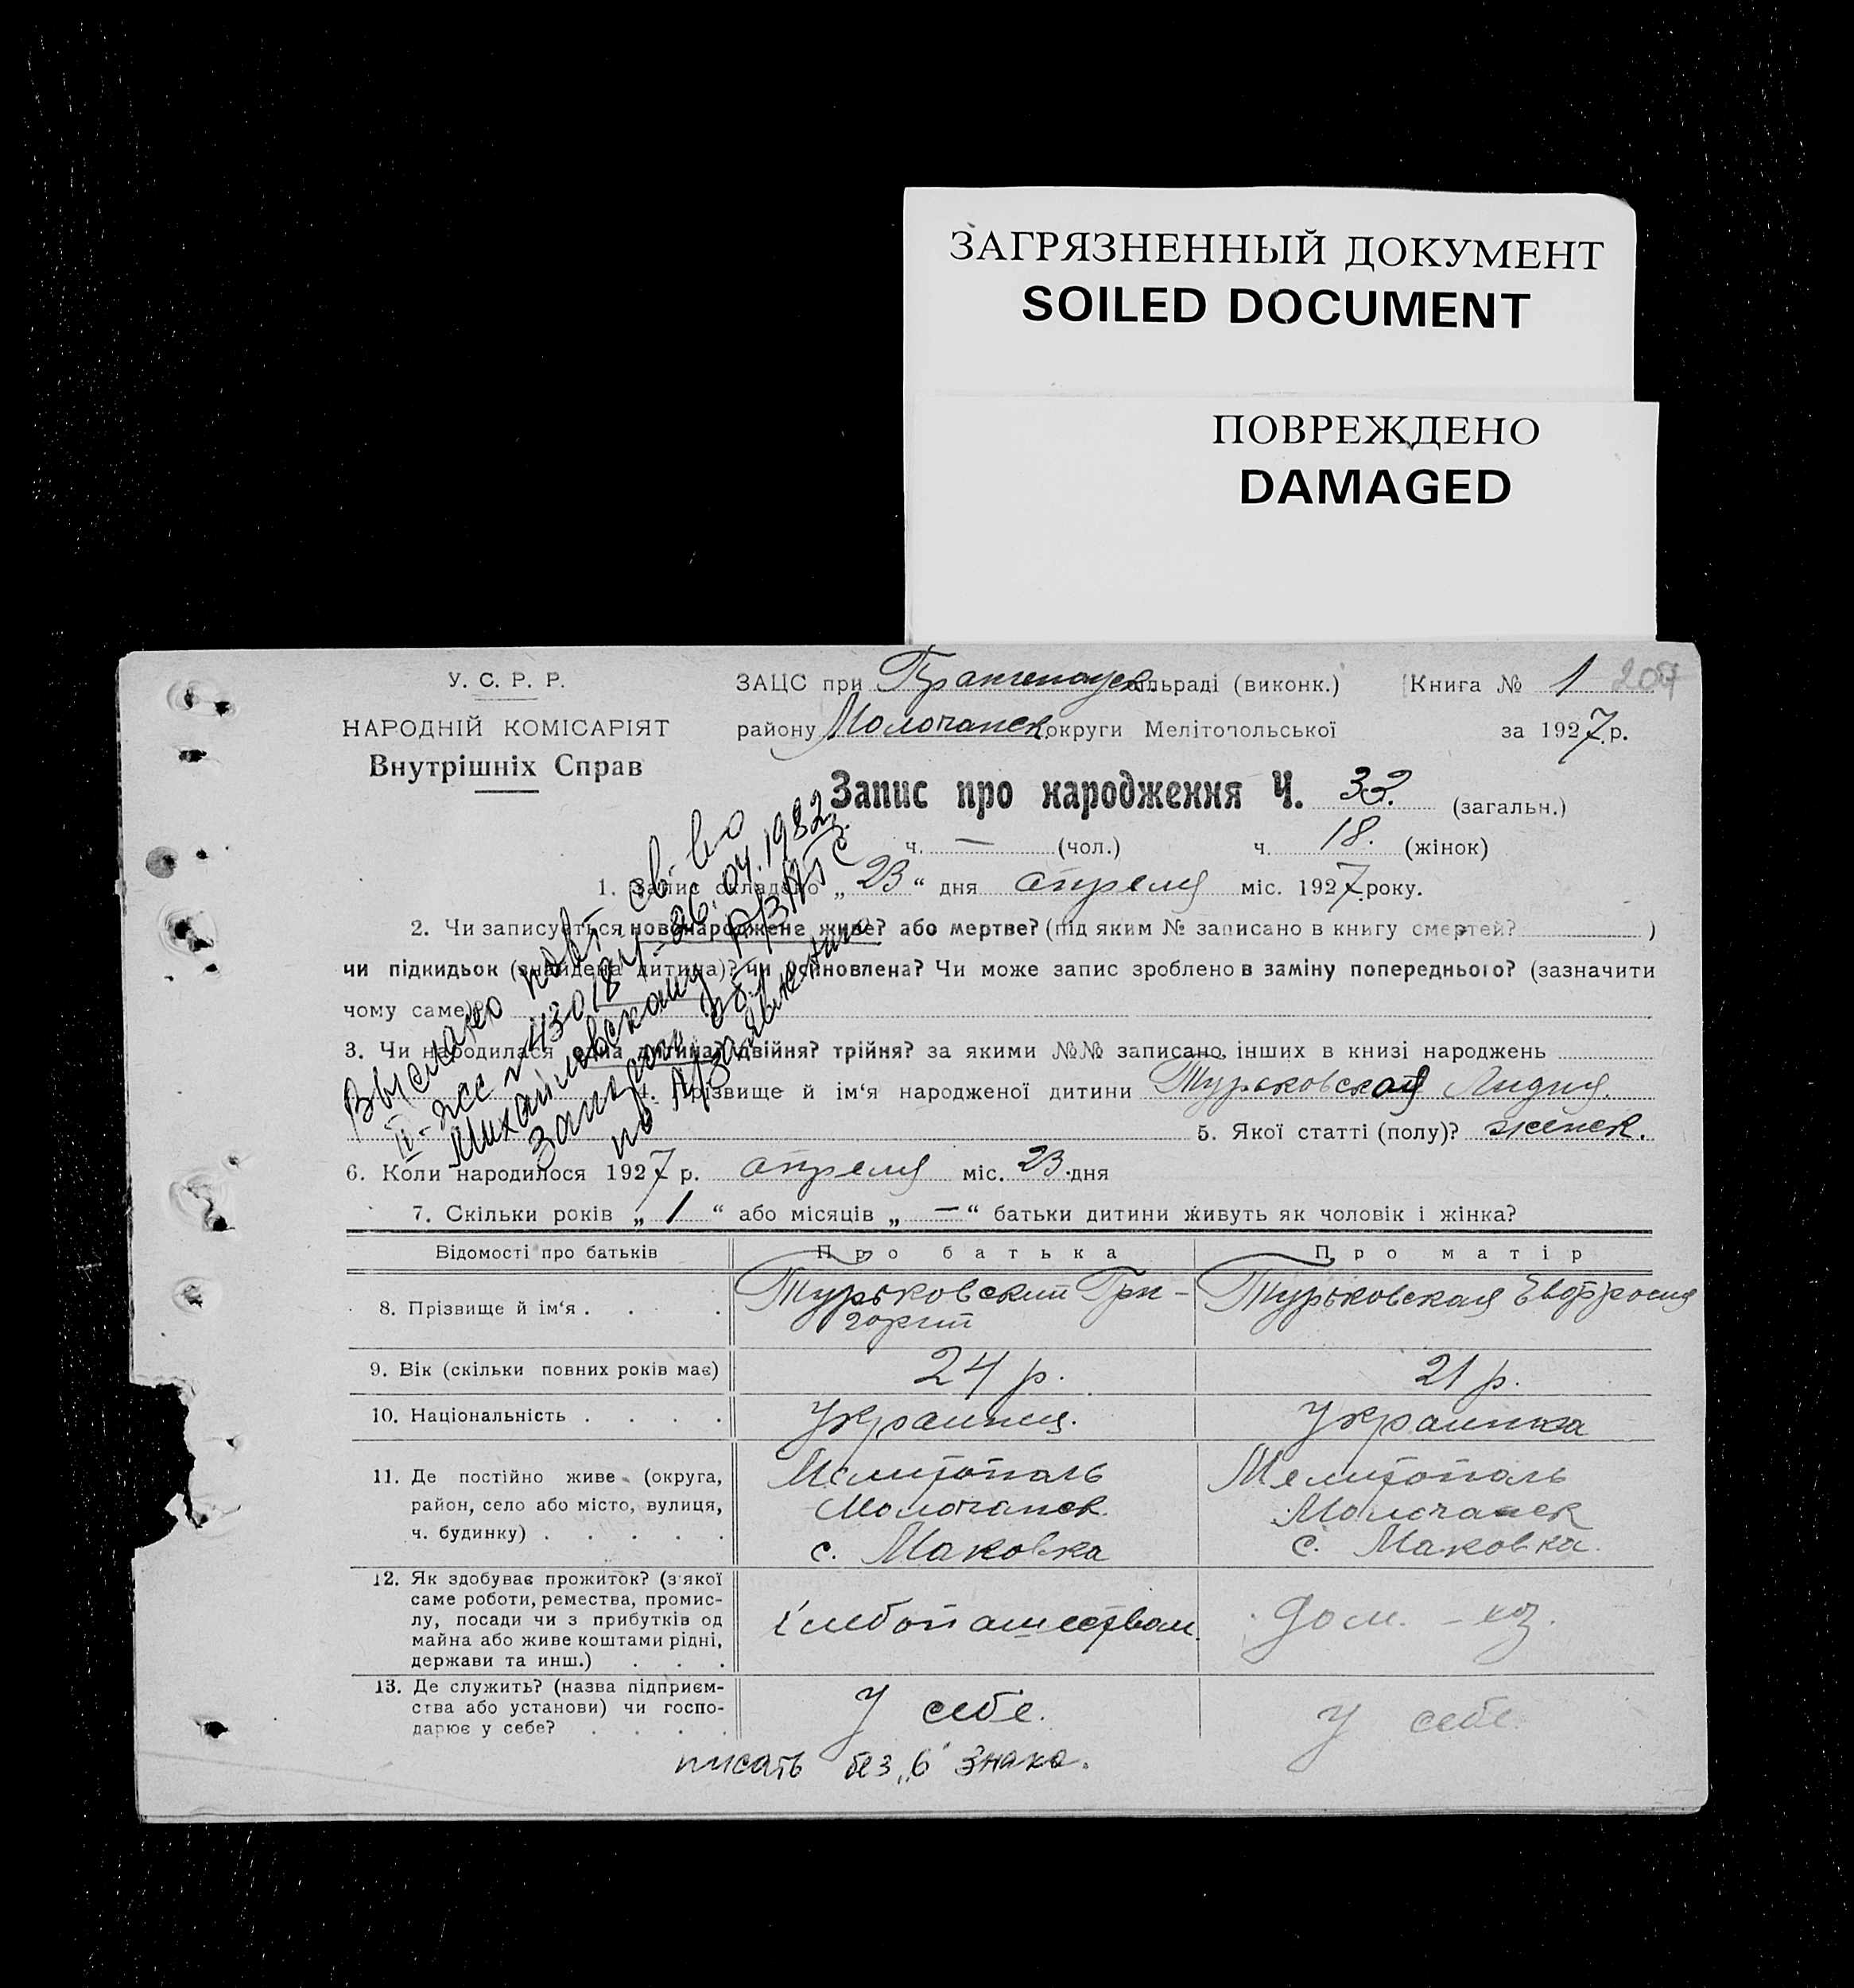 ЗАГРЯЗНЕННЫЙ ДОКУМЕНТ
SOILED DOCUMENT
ПОВРЕЖДЕНО
DAMAGED
У. С. Р. Р.
НАРОДНІЙ КОМІСАРІЯТ
Внутрішніх Справ
ЗАЦС при сільраді (виконк.) Книга № 1 207
району Молочанск. округи Мелітопольської за 1927 р.
Запис про народження Ч. 32. (загальн.)
ч. — (чол.) ч. 18. (жінок)
1. Запис складено „23“ дня апреля міс. 1927 року.
2. Чи записується новонароджене живе? або мертве? (під яким № записано в книгу смертей? )
чи підкидьок (знайдена дитина)? чи усиновлена? Чи може запис зроблено в заміну попереднього? (зазначити
чому саме)?
3. Чи народилася одна дитина? двійня? трійня? за якими №№ записано інших в книзі народжень
4. Прізвище й ім‘я народженої дитини Турьковская Лидия.
5. Якої статті (полу)? женск.
6. Коли народилося 1927 р. апреля міс. 23 дня
7. Скільки років „1“ або місяців „—“ батьки дитини живуть як чоловік і жінка?
Выслано повт. св-во
II-ЖС № 430184 - 26.04.1982
Михайловскому РЗАГС
Запорож. обл.
по
Відомості про батьків Про батька Про матір
8. Прізвище й ім‘я . . . Турьковский Гри-
горий Турьковская Евфросия
9. Вік (скільки повних років має) 24 р. 21 р.
10. Національність . . . . Украинец. Украинка
11. Де постійно живе (округа,
район, село або місто, вулиця,
ч. будинку) . . . . .
Мелитополь
Молочанск.
с. Маковка
Мелитополь
Молочанск
с. Маковка.
12. Як здобуває прожиток? (з якої
саме роботи, ремества, промис-
лу, посади чи з прибутків од
майна або живе коштами рідні,
держави та инш.) . . .
хлебопашеством.
дом. - хоз.
13. Де служить? (назва підприєм-
ства або установи) чи госпо-
дарює у себе? . . . .
У себе.
У себе.
писать без „ь“ знака.